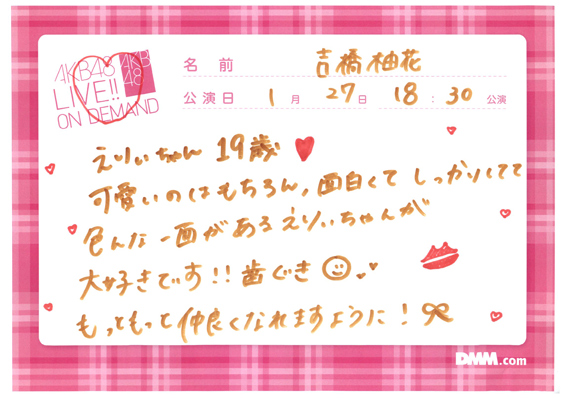 AKB48
LIVE!!
ON DEMAND
AKB
48
名前 吉橋柚花
公演日 1月 27日 18:30 公演
えりぃちゃん 19歳
可愛いのはもちろん,面白くて しっかりしてて
色んな一面があるえりぃちゃんが
大好きです!! 歯ぐき
もっともっと仲良くなれますように!
DMM.com